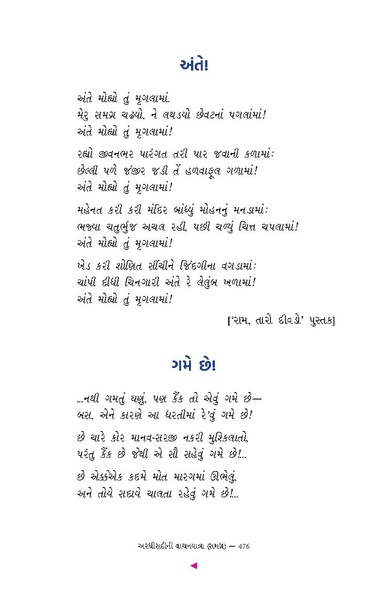 અંતે!
અંતે મોહ્યો તું મૃગલામાં.
મેરુ સમગ્ર ચઢ્યો, ને લથડયો છેવટનાં પગલાંમાં!
અંતે મોહ્યો તું મૃગલામાં!
રહ્યો જીવનભર પારંગત તરી પાર જવાની કળામાંઃ
છેલ્લી પળે જંજીર જડી તેં હળવાફૂલ ગળામાં!
અંતે મોહ્યો તું મૃગલામાં!
મહેનત કરી કરી મંદિર બાંધ્યું મોહનનું મનડામાંઃ
ભજ્યા ચતુર્ભુજ અચલ રહી, પછી ચળ્યું ચિત્ત ચપલામાં!
અંતે મોહ્યો તું મૃગલામાં!
ખેડ કરી શોણિત સીંચીને જિંદગીના વગડામાંઃ
ચાંપી દીધી ચિનગારી અંતે રે લેલુંબ ખળામાં!
અંતે મોહ્યો તું મૃગલામાં!
[‘રામ, તારો દીવડો’ પુસ્તક]
ગમે છે!
...નથી ગમતું ઘણું, પણ કૈંક તો એવું ગમે છે—
બસ, એને કારણે આ ધરતીમાં રે’વું ગમે છે!
છે ચારે કોર માનવ-સરજી નકરી મુશ્કિલાતો,
પરંતુ કૈંક છે જેથી એ સૌ સહેવું ગમે છે!...
છે એક્કેએક કદમે મોત મારગમાં ઊભેલું,
અને તોયે સદાયે ચાલતા રહેવું ગમે છે!...
અરધીસદીની વાચનયાત્રા (સમગ્ર) — 476